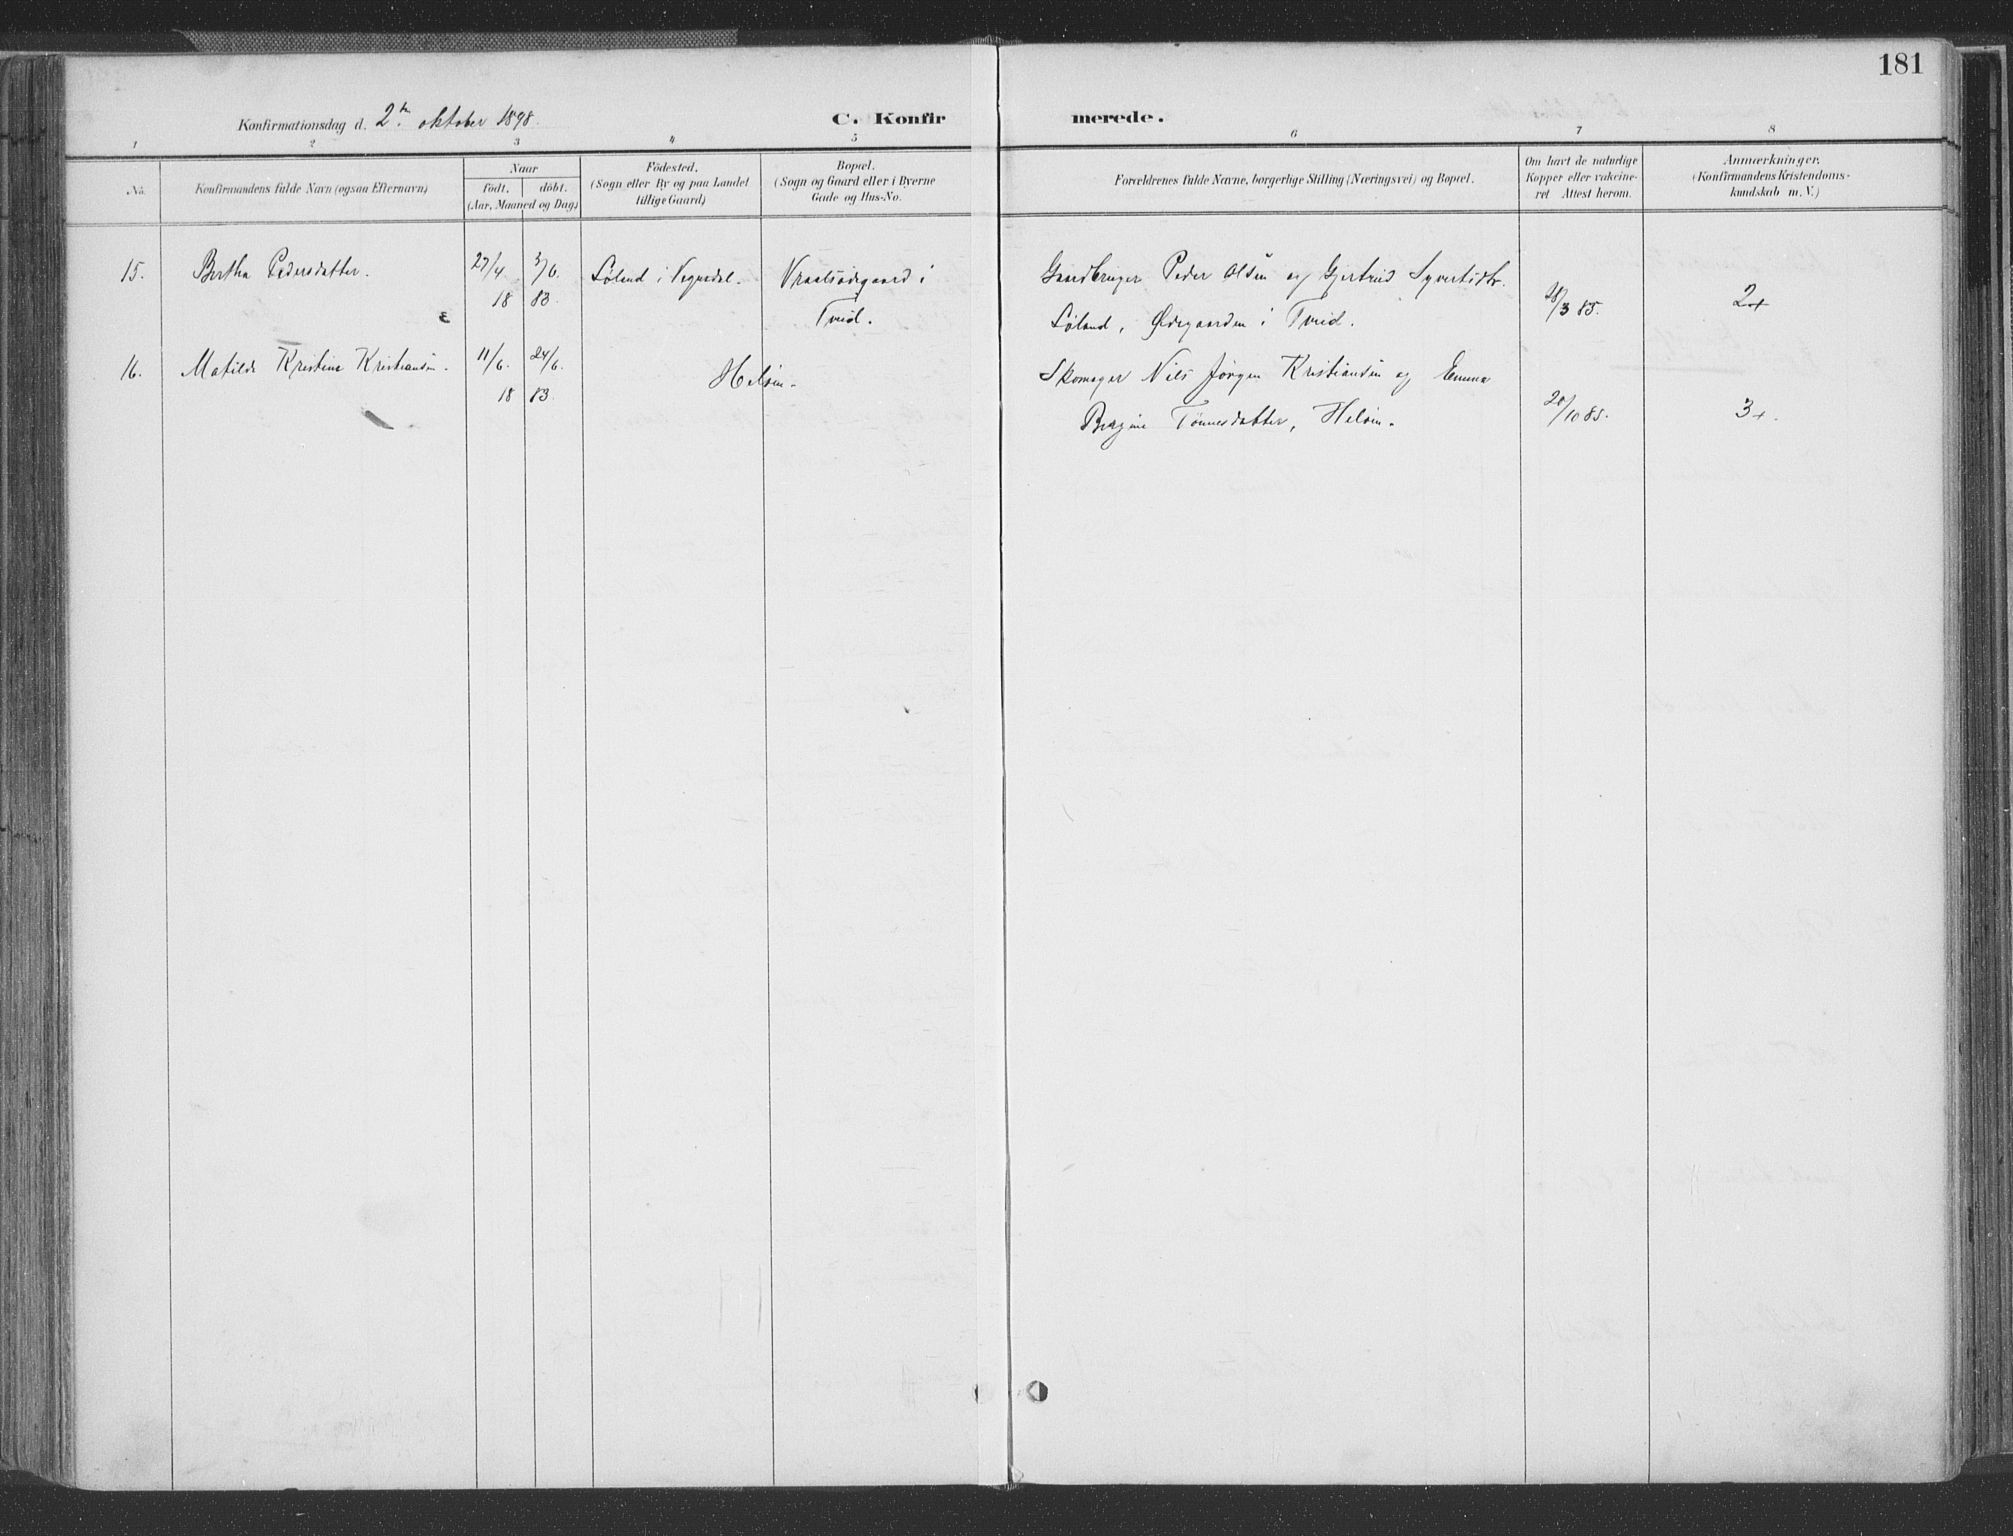 181
Konfirmationsdag d. 2den oktober 1898.
C. Konfirmerede.
1 2 3 4 5 6 7 8
No. Konfirmandens fulde Navn (ogsaa Efternavn)
Naar
födt. döbt.
(Aar, Maaned og Dag)
Födested.
(Sogn eller By og paa Landet
tillige Gaard)
Bopæl.
(Sogn og Gaard eller i Byerne
Gade og Hus-No.
Forældrenes fulde Navne, borgerlige Stilling (Næringsvei) og Bopæl.
Om havt de naturlige
Kopper eller vakcine-
ret Attest herom.
Anmærkninger.
(Konfirmandens Kristendoms-
kundskab m. V.)
15. Bertha Pedersdatter. 27/4 3/6. Løland i Vegusdal. Vraalsødegaard i
18 83.
Tveid.
Gaardbruger Peder Olsen og Gjertrud Syvertsdtr.
Løland, Ødegaarden i Tveid. 28/3 85. 2+
16. Matilde Kristine Kristiansen. 11/6. 24/6. Helsin.
18 83.
Skomager Nils Jørgen Kristiansen og Emma
Bergine Tønnesdatter, Helsin. 20/10 85. 3+.